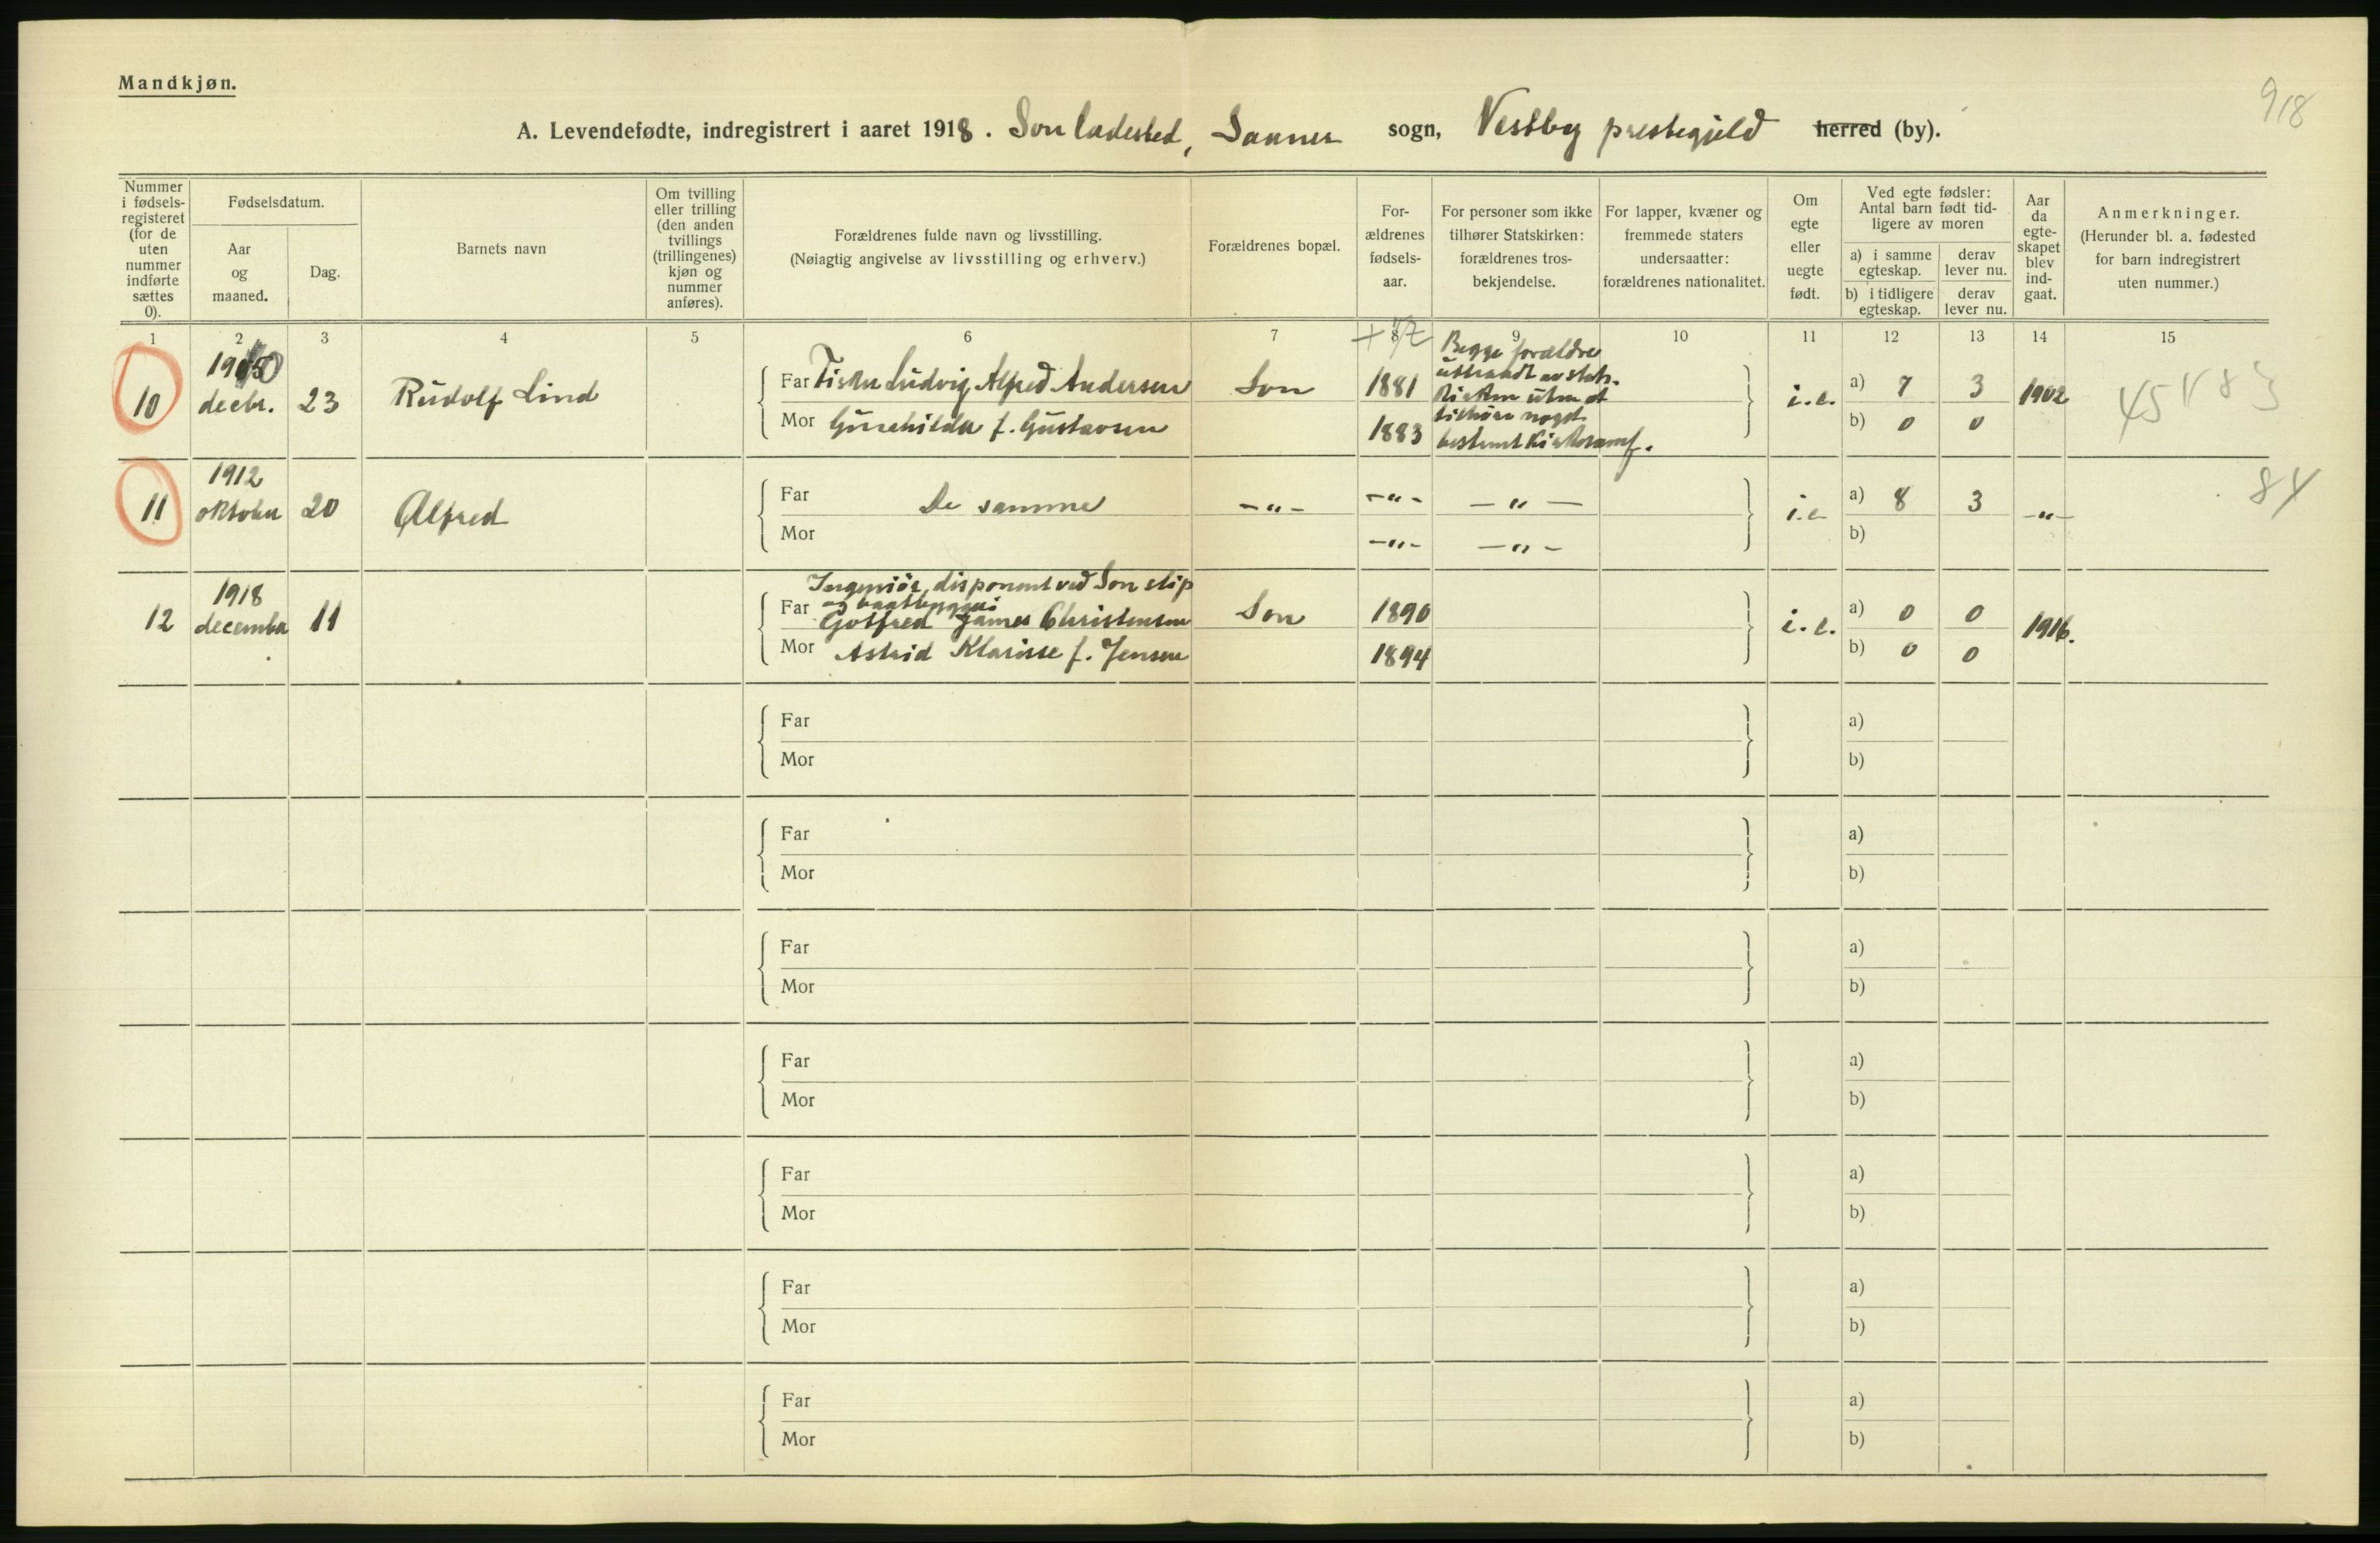 Mandkjøn.
918
A. Levendefødte, indregistrert i aaret 1918. Son ladested, Saaner sogn, Vestby prestegjeld herred (by).
Nummer i fødsels-registeret (for de uten nummer indførte sættes 0).
Fødselsdatum.
Aar og maaned.
Dag.
Barnets navn
Om tvilling eller trilling (den anden tvillings (trillingenes) kjøn og nummer anføres).
Forældrenes fulde navn og livsstilling.
(Nøiagtig angivelse av livsstilling og erhverv.)
Forældrenes bopæl.
For-ældrenes fødsels-aar.
For personer som ikke tilhører Statskirken: forældrenes tros-bekjendelse.
For lapper, kvæner og fremmede staters undersaatter: forældrenes nationalitet.
Om egte eller uegte født.
Ved egte fødsler: Antal barn født tid-ligere av moren
a) i samme egteskap.
derav lever nu.
b) i tidligere egteskap.
derav lever nu.
Aar da egte-skapet blev ind-gaat.
Anmerkninger.
(Herunder bl. a. fødested for barn indregistrert uten nummer.)
1 2 3 4 5 6 7 8 9 10 11 12 13 14 15
10 decbr. 23 Rudolf Lind
Far Fisker Ludvig Alfred Andersen Son 1881
Mor f. Gustavsen 1883
Begge forældre
utmeldt av stats-
kirken uten at
tilhøre noget
bestemt kirkesamf.
i.e. a) 7 3 1902
b) 0 0
45 83
11 1912 oktober 20 Alfred
Far De samme -"- -"- -"-
Mor -"- -"-
i.e a) 8 3 -"-
b)
84
12 1918 december 11
Ingeniör, disponent ved Son slip
og baatbyggeri
Far Gotfred James Christensen Son 1890
Mor Astrid Klarisse f. Jensen 1894
i.e. a) 0 0 1916.
b) 0 0
Far a)
Mor b)
Far a)
Mor b)
Far a)
Mor b)
Far a)
Mor b)
Far a)
Mor b)
Far a)
Mor b)
Far a)
Mor b)